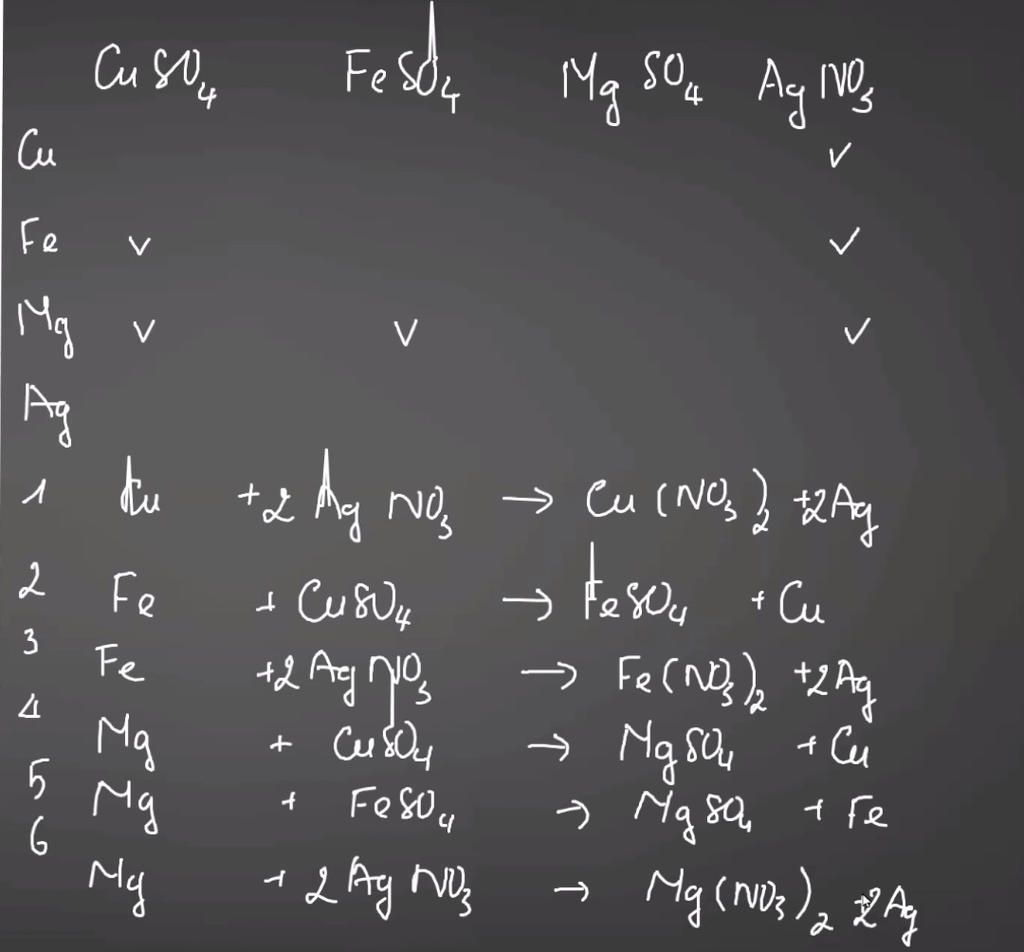 CuSO4 FeSO4 MgSO4 AgNO3
Cu v
Fe v v
Mg v v v
Ag
1 Cu +2AgNO3 → Cu(NO3)2 +2Ag
2 Fe + CuSO4 → FeSO4 + Cu
3 Fe +2AgNO3 → Fe(NO3)2 +2Ag
4 Mg + CuSO4 → MgSO4 + Cu
5 Mg + FeSO4 → MgSO4 + Fe
6 Mg + 2AgNO3 → Mg(NO3)2 +2Ag